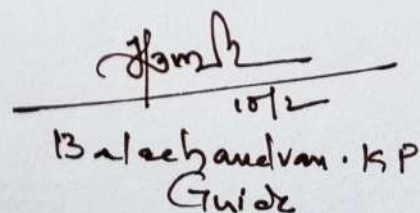 10/2
Balachandran. K P
Guide